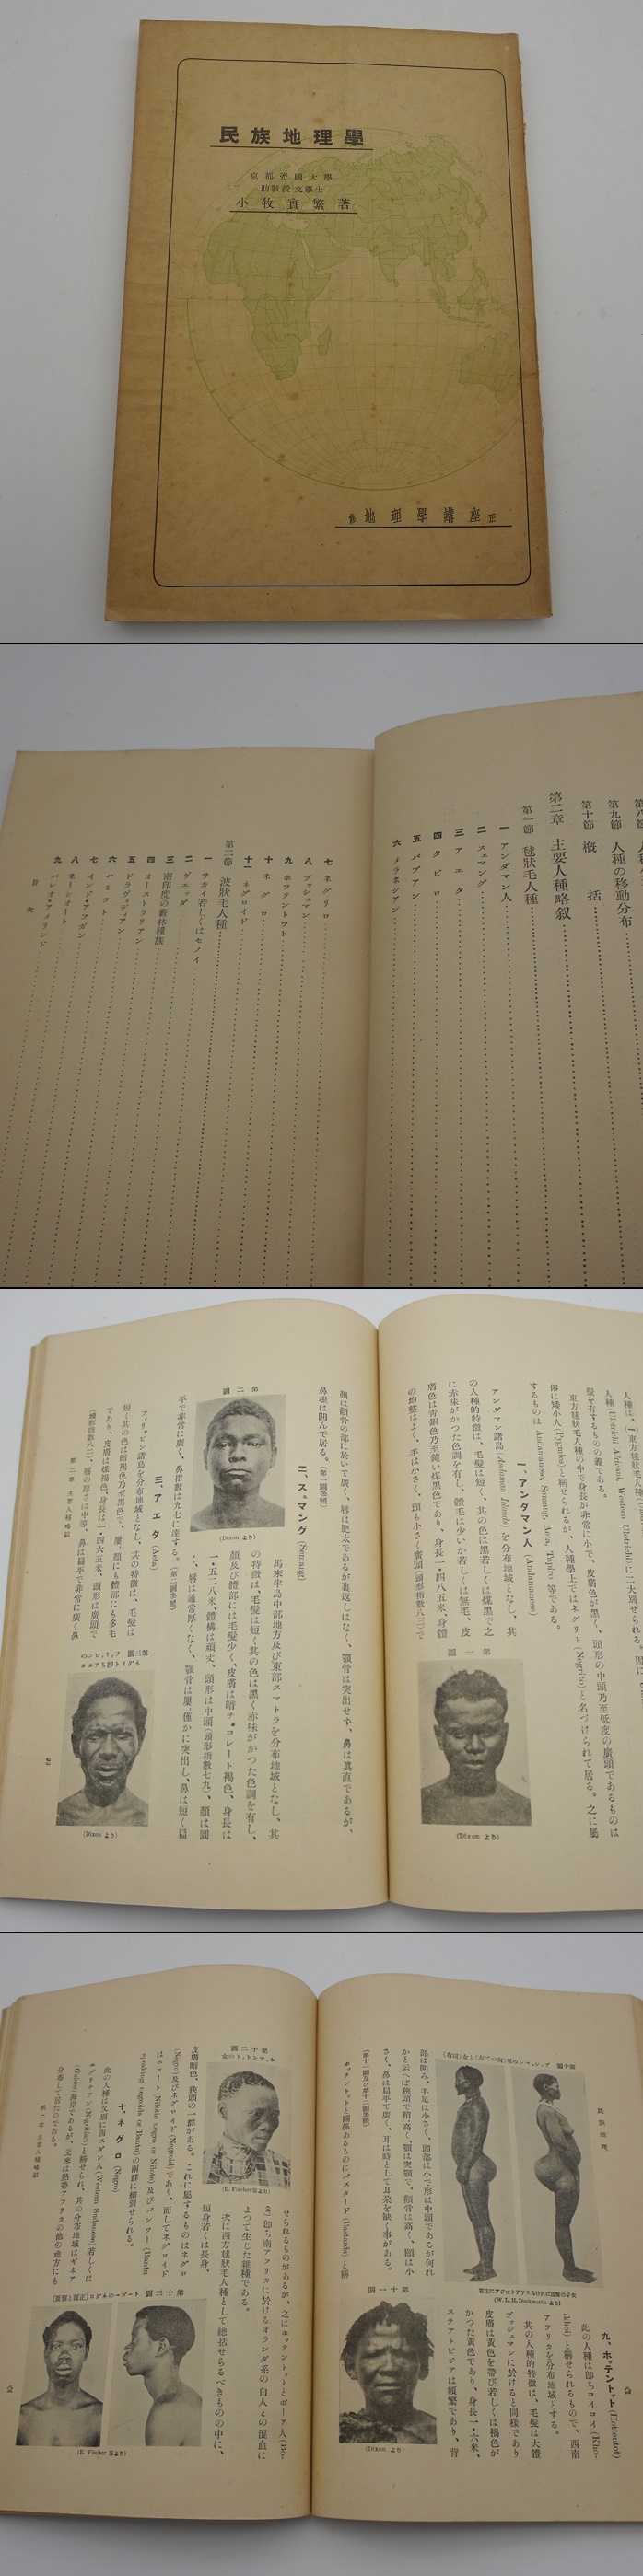 民族地理學
京都帝國大學
助教授文學士
小牧實繁著
修正地理學講座
第九節 人種の移動分布
第十節 概括
第二章 主要人種略叙
第一節 毬狀毛人種
一 アンダマン人
二 スェマング
三 アエタ
四 タピロ
五 パプアン
六 メラネシアン
七 ネグリロ
八 ブッシュマン
九 ホッテントット
十 ネグロ
十一 ネグロイド
第二節 波狀毛人種
一 サカイ若しくはセノイ
二 ヴェッダ
三 南印度の藪林種族
四 オーストラリアン
五 ドラヴィディアン
六 ハミット
七 インド・アフガン
八 ネーシオート
九 パレオ・アメリンド
目次
髮を有するものの義である。
東方毬狀毛人種の中で身長が非常に小で、皮膚色が黑く、頭形の中頭乃至低度の廣頭であるものは
俗に矮小人(Pygmies)と稱せられるが、人種學上ではネグリト(Negrito)と名づけられて居る。之に屬
するものは Andamanese, Semang, Aeta, Tapiro 等である。
一、アンダマン人 (Andamanese)
アンダマン諸島(Andaman Islands)を分布地域となし、其
の人種的特徴は、毛髮は短く、其の色は黑若しくは煤黑で之
に赤味がかつた色調を有し、體毛は少いか若しくは無毛、皮
膚色は靑銅色乃至鈍い煤黑色であり、身長一・四八五米、身體
の均整はよく、手は小さく、頭も小さく廣頭(頭形指數八三)で
第一圖
(Dixon より)
顏は顴骨の部に於いて廣く、唇は肥太であるが裏返しはなく、顎骨は突出せず、鼻は眞直であるが、
鼻根は凹んで居る。(第一圖參照)
二、スェマング (Semang)
馬來半島中部地方及び東部スマトラを分布地域となし、其
の特徴は、毛髮は短く其の色は黑く赤味がかつた色調を有し、
顏及び體部には毛髮少く、皮膚は暗チョコレート褐色、身長は
一・五二八米、體構は頑丈、頭形は中頭(頭形指數七九)、顏は圓
く、唇は通常厚くなく、顎骨は屢〻僅かに突出し、鼻は短く扁
平で非常に廣く、鼻指數は九七に達する。(第二圖參照)
第二圖
(Dixon より)
三、アエタ (Aeta)
フィリッピン諸島を分布地域となし、其の特徴は、毛髮は
短く其の色は暗褐色乃至黑色で、屢〻顏にも體部にも多毛
であり、皮膚は煤褐色、身長は一・四六五米、頭形は廣頭で
(頭形指數八二)、唇の厚さは中等、鼻は扁平で非常に廣く鼻
第二章 主要人種略叙
第三圖 フィリッピンの
(Dixon より)
民族地理學
第十圖
(W. L. H. Duckworth より)
九、ホッテントット (Hottentot)
此の人種は卽ちコイコイ(Khoi-
Khoi)と稱せられるもので、西南
アフリカを分布地域とする。
其の人種的特徴は、毛髮は大體
ブッシュマンに於けると同樣であり
皮膚は黃色を帶び若しくは褐色が
かつた黃色であり、身長一・六米、
ステアトピジアは頻繁であり、脊
部は凹み、手足は小さく、頭部は小で形は中頭であるが何れ
かと云へば狹頭で稍〻高く、顎は突顎で、顴骨は高く、頤は小
さく、鼻は扁平で廣く、耳は時として耳朶を缺く事がある。
(第十一圖及び第十二圖參照)
ホッテントットと關係あるものにバスタード(Bastards)と稱
第十一圖
(Dixon より)
よつて生じた雜種である。
次に西方毬狀毛人種として總括せらるべきものの中に、
短身若くは長身、
皮膚暗色、狹頭の一群がある。これに屬するものはネグロ
(Negro)及びネグロイド(Negroid)であり、而してネグロイド
第十二圖
ホッテントットの女
(E. Fischer等より)
十、ネグロ (Negro)
此の人種は又別に西スダン人(Western Sudanese)若しくは
ニグリチアン(Nigritian)と稱せられ、其の分布地域はギネア
(Guinea)海岸であるが、元來は熱帶アフリカの他の地方にも
分布して居たのである。
第二章 主要人種略叙
第十三圖
(E. Fischer等より)